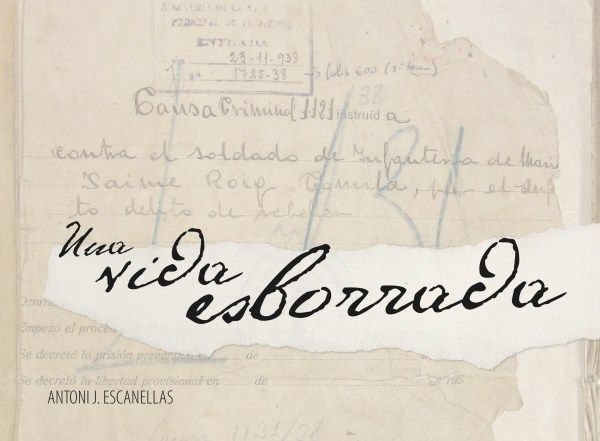 ENTRADA
23-11-938
1725-38 → folio 600
38
Causa Criminal 1121 instruid a
contra el soldado de Infantería de Mari
Jaime Roig Tomila, por el
to delito de rebelión
Una
vida
esborrada
Empezó el proced
Se decretó la prisión preventiva en de
Se decretó la libertad provisional en de de 193
ANTONI J. ESCANELLAS
1121/38